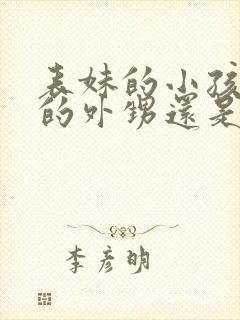 表妹的小孩
的外甥還是
李彦明